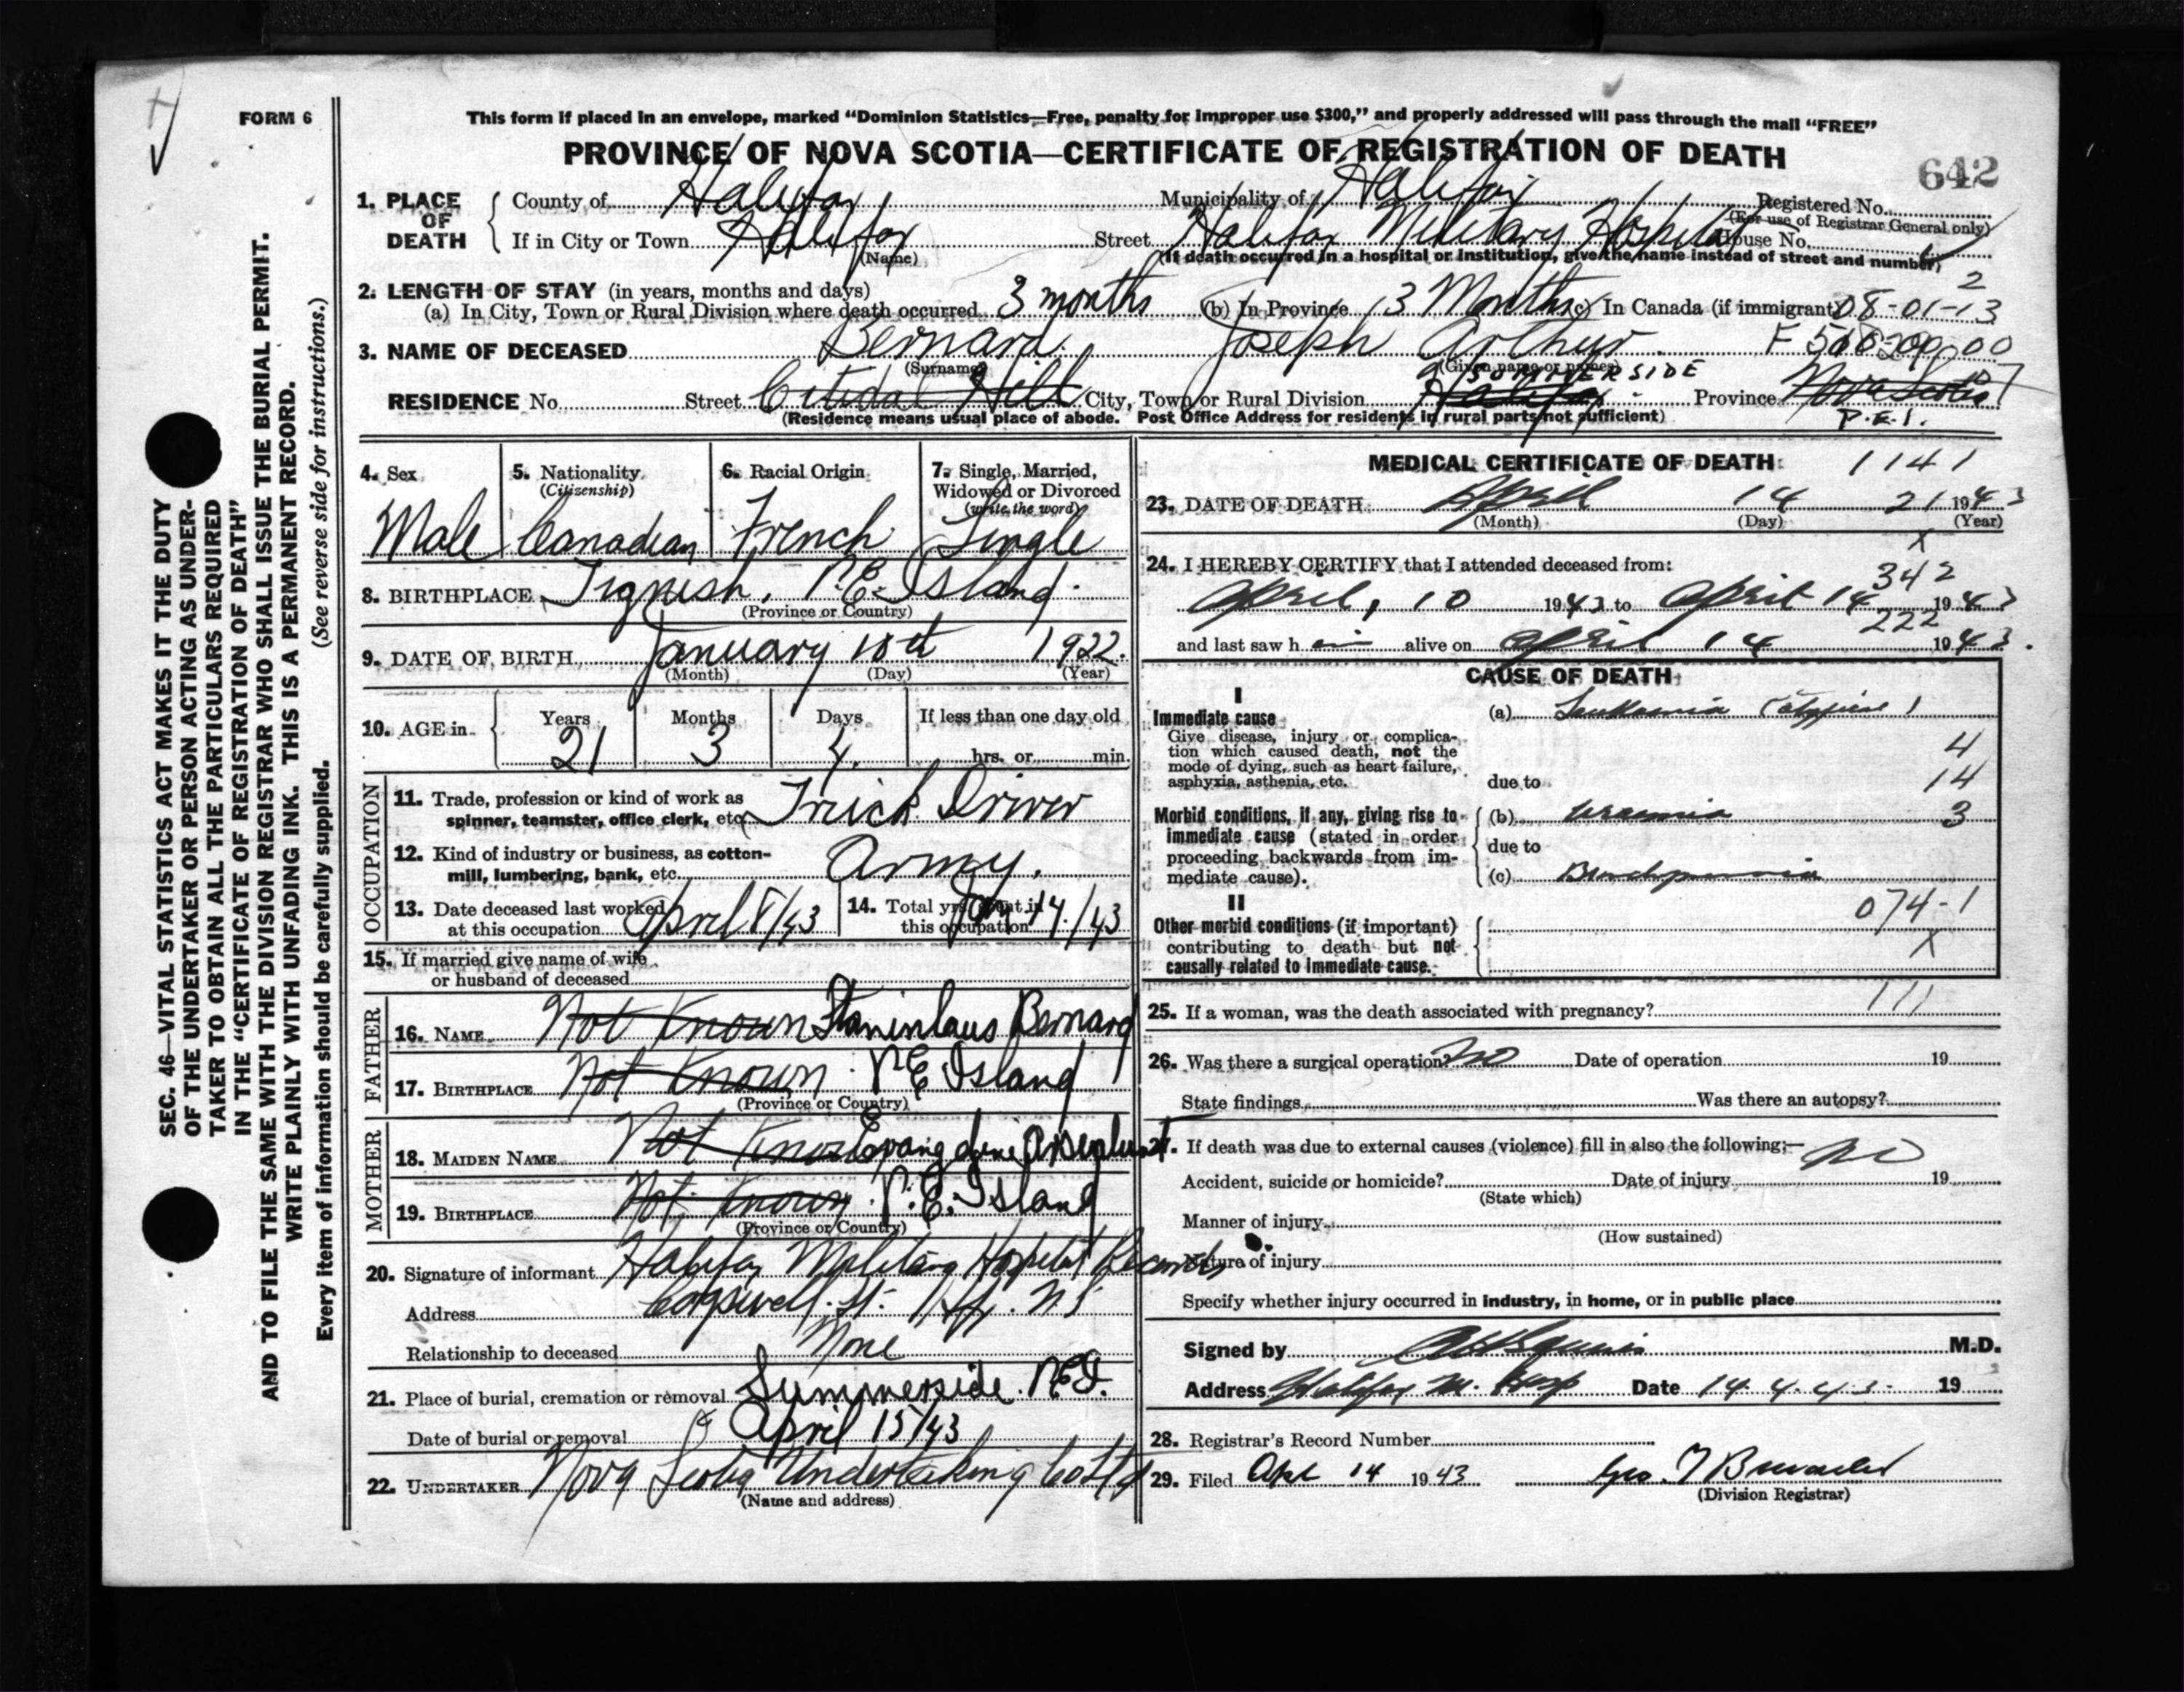 FORM 6
This form if placed in an envelope, marked “Dominion Statistics—Free, penalty for improper use $300,” and properly addressed will pass through the mail “FREE”
PROVINCE OF NOVA SCOTIA—CERTIFICATE OF REGISTRATION OF DEATH
642
1. PLACE OF DEATH
County of Halifax Municipality of Halifax Registered No.
(For use of Registrar General only)
If in City or Town Halifax Street Halifax Military Hospital House No.
(Name) (If death occurred in a hospital or institution, give the name instead of street and number)
2. LENGTH OF STAY (in years, months and days) 2
(a) In City, Town or Rural Division where death occurred 3 months (b) In Province 3 Months (c) In Canada (if immigrant) 08-01-13
3. NAME OF DECEASED Bernard Joseph Arthur
(Surname) (Given name or names)
SUMMERSIDE
RESIDENCE No. Street Citidal Hill City, Town or Rural Division Halifax Province Nova Scotia
(Residence means usual place of abode. Post Office Address for residents in rural parts not sufficient) P.E.I.
4. Sex
Male
5. Nationality
(Citizenship)
Canadian
6. Racial Origin
French
7. Single, Married, Widowed or Divorced
(write the word)
Single
8. BIRTHPLACE Tignish, P.E. Island
(Province or Country)
9. DATE OF BIRTH January 10th 1922.
(Month) (Day) (Year)
10. AGE in Years Months Days If less than one day old
21 3 4 hrs. or min.
OCCUPATION
11. Trade, profession or kind of work as
spinner, teamster, office clerk, etc. Truck Driver
12. Kind of industry or business, as cotton-
mill, lumbering, bank, etc. Army.
13. Date deceased last worked
at this occupation April 8/43
14. Total yrs. spent in
this occupation 14/43
15. If married give name of wife
or husband of deceased
FATHER
16. NAME Not Known Staninlaus Bernard
17. BIRTHPLACE Not Known P.E Island
(Province or Country)
MOTHER
18. MAIDEN NAME Not Known Evangeline Arsenault
19. BIRTHPLACE Not Known P.E. Island
(Province or Country)
20. Signature of informant Halifax Military Hospital Records
Address Cogswell St. Hfx. N.S
Relationship to deceased None
21. Place of burial, cremation or removal Summerside P.E.I.
Date of burial or removal April 15/43
22. UNDERTAKER Nova Scotia Undertaking Co Ltd
(Name and address)
MEDICAL CERTIFICATE OF DEATH 1141
23. DATE OF DEATH April 14 21 1943
(Month) (Day) (Year)
X
24. I HEREBY CERTIFY that I attended deceased from:
342
April, 10 1943 to April 14 1943
222
and last saw him alive on April 14 1943.
CAUSE OF DEATH
I
Immediate cause
Give disease, injury or complica-
tion which caused death, not the
mode of dying, such as heart failure,
asphyxia, asthenia, etc.
(a) Leukaemia (atypical)
4
due to 14
Morbid conditions, if any, giving rise to
immediate cause (stated in order
proceeding backwards from im-
mediate cause).
(b) uraemia 3
due to
(c)
074-1
II
Other morbid conditions (if important)
contributing to death but not
causally related to immediate cause.
X
25. If a woman, was the death associated with pregnancy? 111
26. Was there a surgical operation? No Date of operation 19
State findings Was there an autopsy?
27. If death was due to external causes (violence) fill in also the following:— No
Accident, suicide or homicide? Date of injury 19
(State which)
Manner of injury
(How sustained)
Nature of injury
Specify whether injury occurred in industry, in home, or in public place
Signed by M.D.
Address Halifax M. Hosp Date 14.4.43. 19
28. Registrar's Record Number
29. Filed Apl 14 1943 Geo.
(Division Registrar)
SEC. 46—VITAL STATISTICS ACT MAKES IT THE DUTY
OF THE UNDERTAKER OR PERSON ACTING AS UNDER-
TAKER TO OBTAIN ALL THE PARTICULARS REQUIRED
IN THE “CERTIFICATE OF REGISTRATION OF DEATH”
AND TO FILE THE SAME WITH THE DIVISION REGISTRAR WHO SHALL ISSUE THE BURIAL PERMIT.
WRITE PLAINLY WITH UNFADING INK. THIS IS A PERMANENT RECORD.
Every item of information should be carefully supplied. (See reverse side for instructions.)